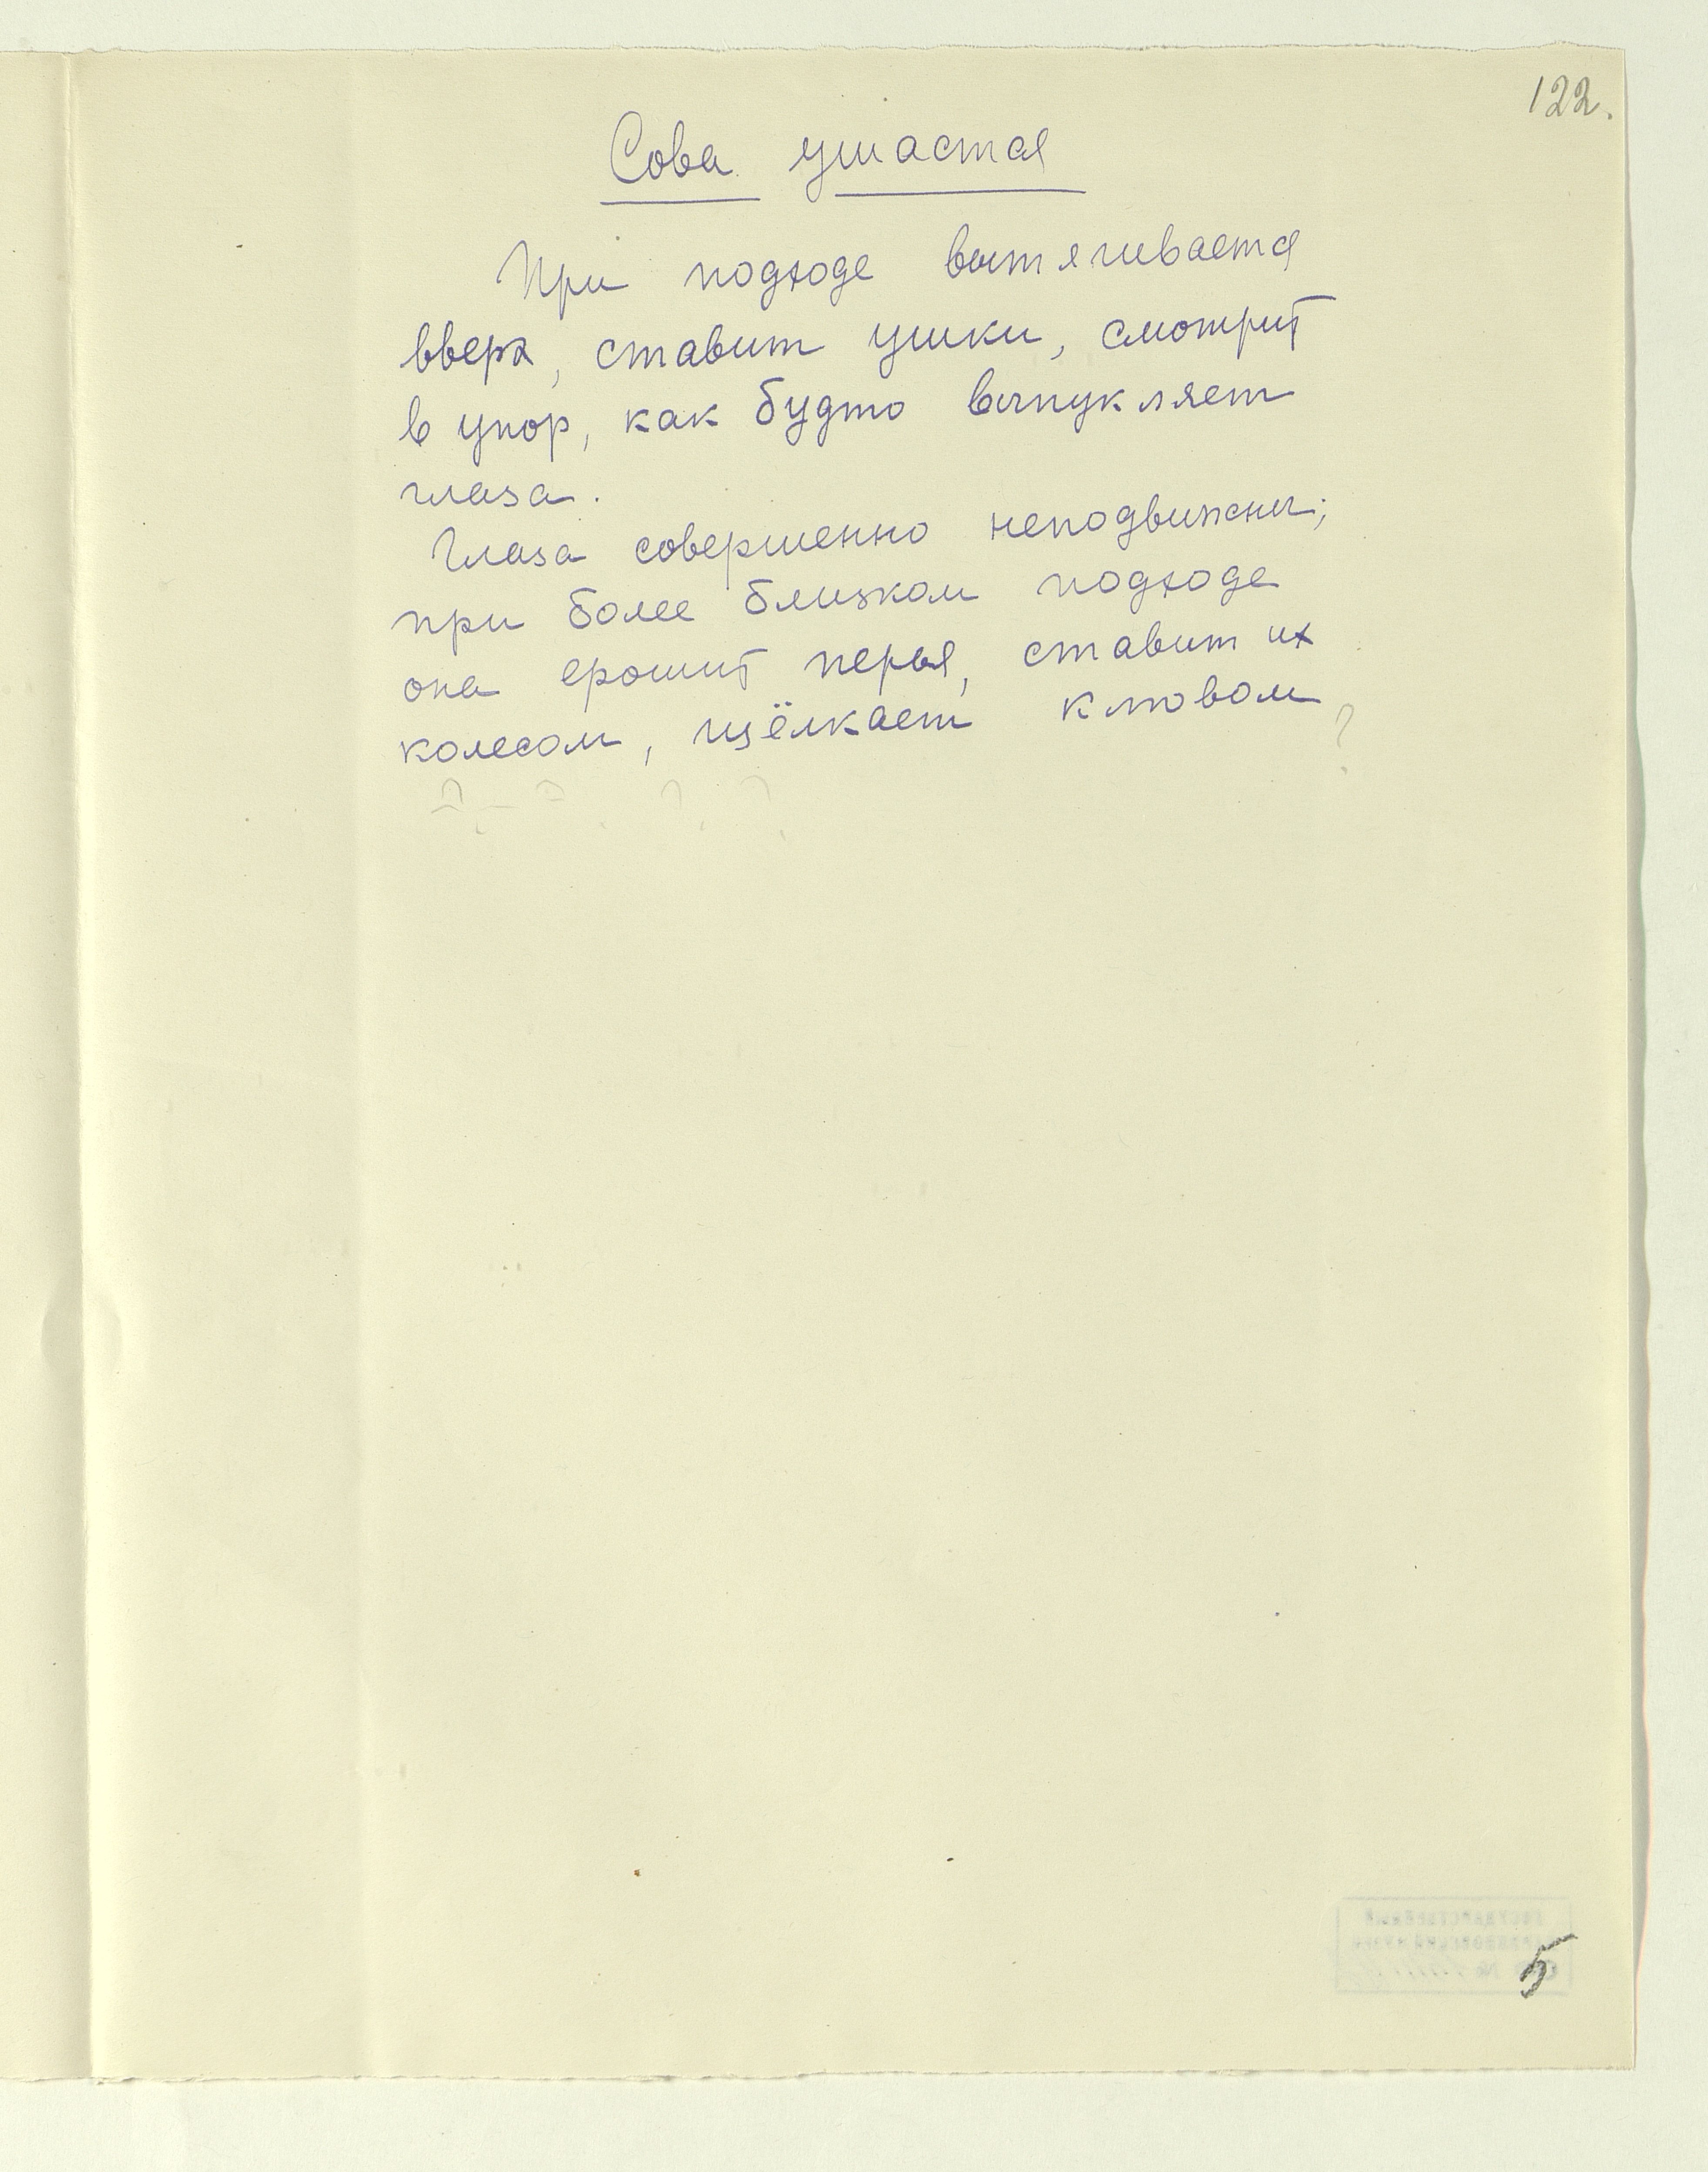 122.
Сова ушастая
При подходе вытягивается
вверх, ставит ушки, смотрит
в упор, как будто выпукляет
глаза.
Глаза совершенно неподвижны;
при более близком подходе
она ерошит перья, ставит их
колесом, щёлкает клювом
?
5